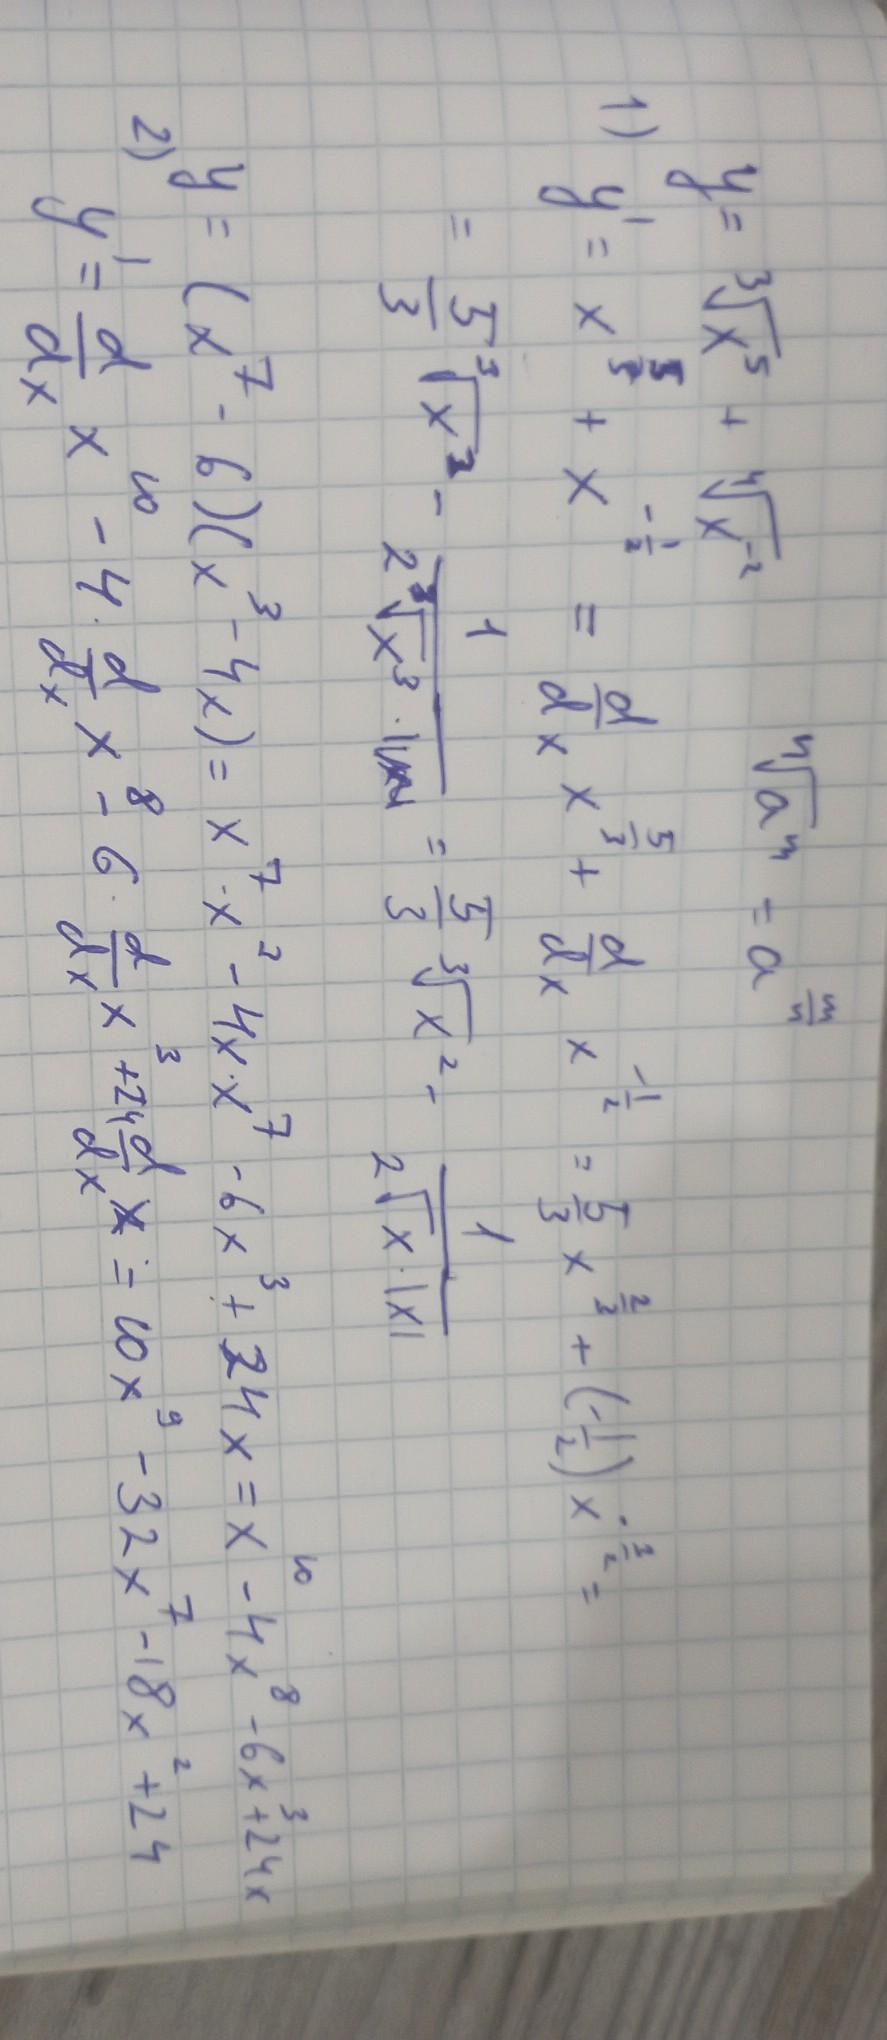 ⁿ√aᵐ = a^(m/n)
1) y = ³√x⁵ + ⁴√x⁻²
y' = x^(5/3) + x^(-1/2) = d/dx x^(5/3) + d/dx x^(-1/2) = 5/3 x^(2/3) + (-1/2) x^(-3/2) =
= 5/3 ³√x² - 1/(2√x³) = 5/3 ³√x² - 1/(2√x · |x|)
2) y = (x⁷ - 6)(x³ - 4x) = x⁷ · x² - 4x · x⁷ - 6x³ + 24x = x¹⁰ - 4x⁸ - 6x³ + 24x
y' = d/dx x¹⁰ - 4 · d/dx x⁸ - 6 · d/dx x³ + 24 d/dx x = 10x⁹ - 32x⁷ - 18x² + 24